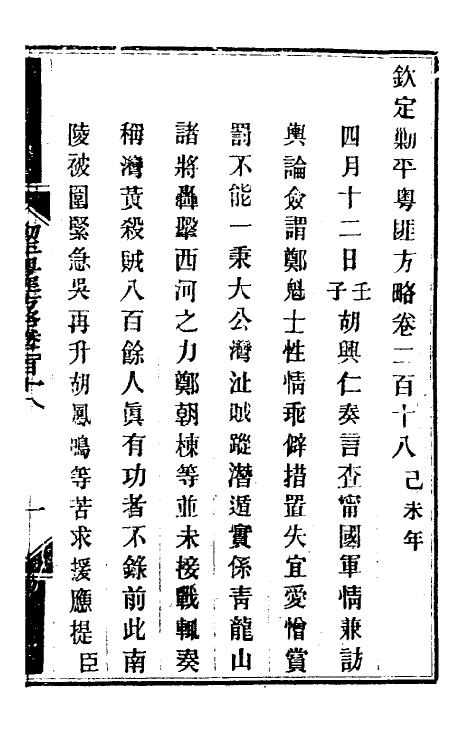 欽定勦平粵匪方略卷二百十八己未年
四月十二日壬子胡興仁奏言查甯國軍情兼訪
輿論僉謂鄭魁士性情乖僻措置失宜愛憎賞
罰不能一秉大公灣沚賊蹤潛遁實係靑龍山
諸將轟擊西河之力鄭朝棟等並未接戰輒奏
稱灣黃殺賊八百餘人眞有功者不錄前此南
陵被圍緊急吳再升胡鳳鳴等苦求援應提臣